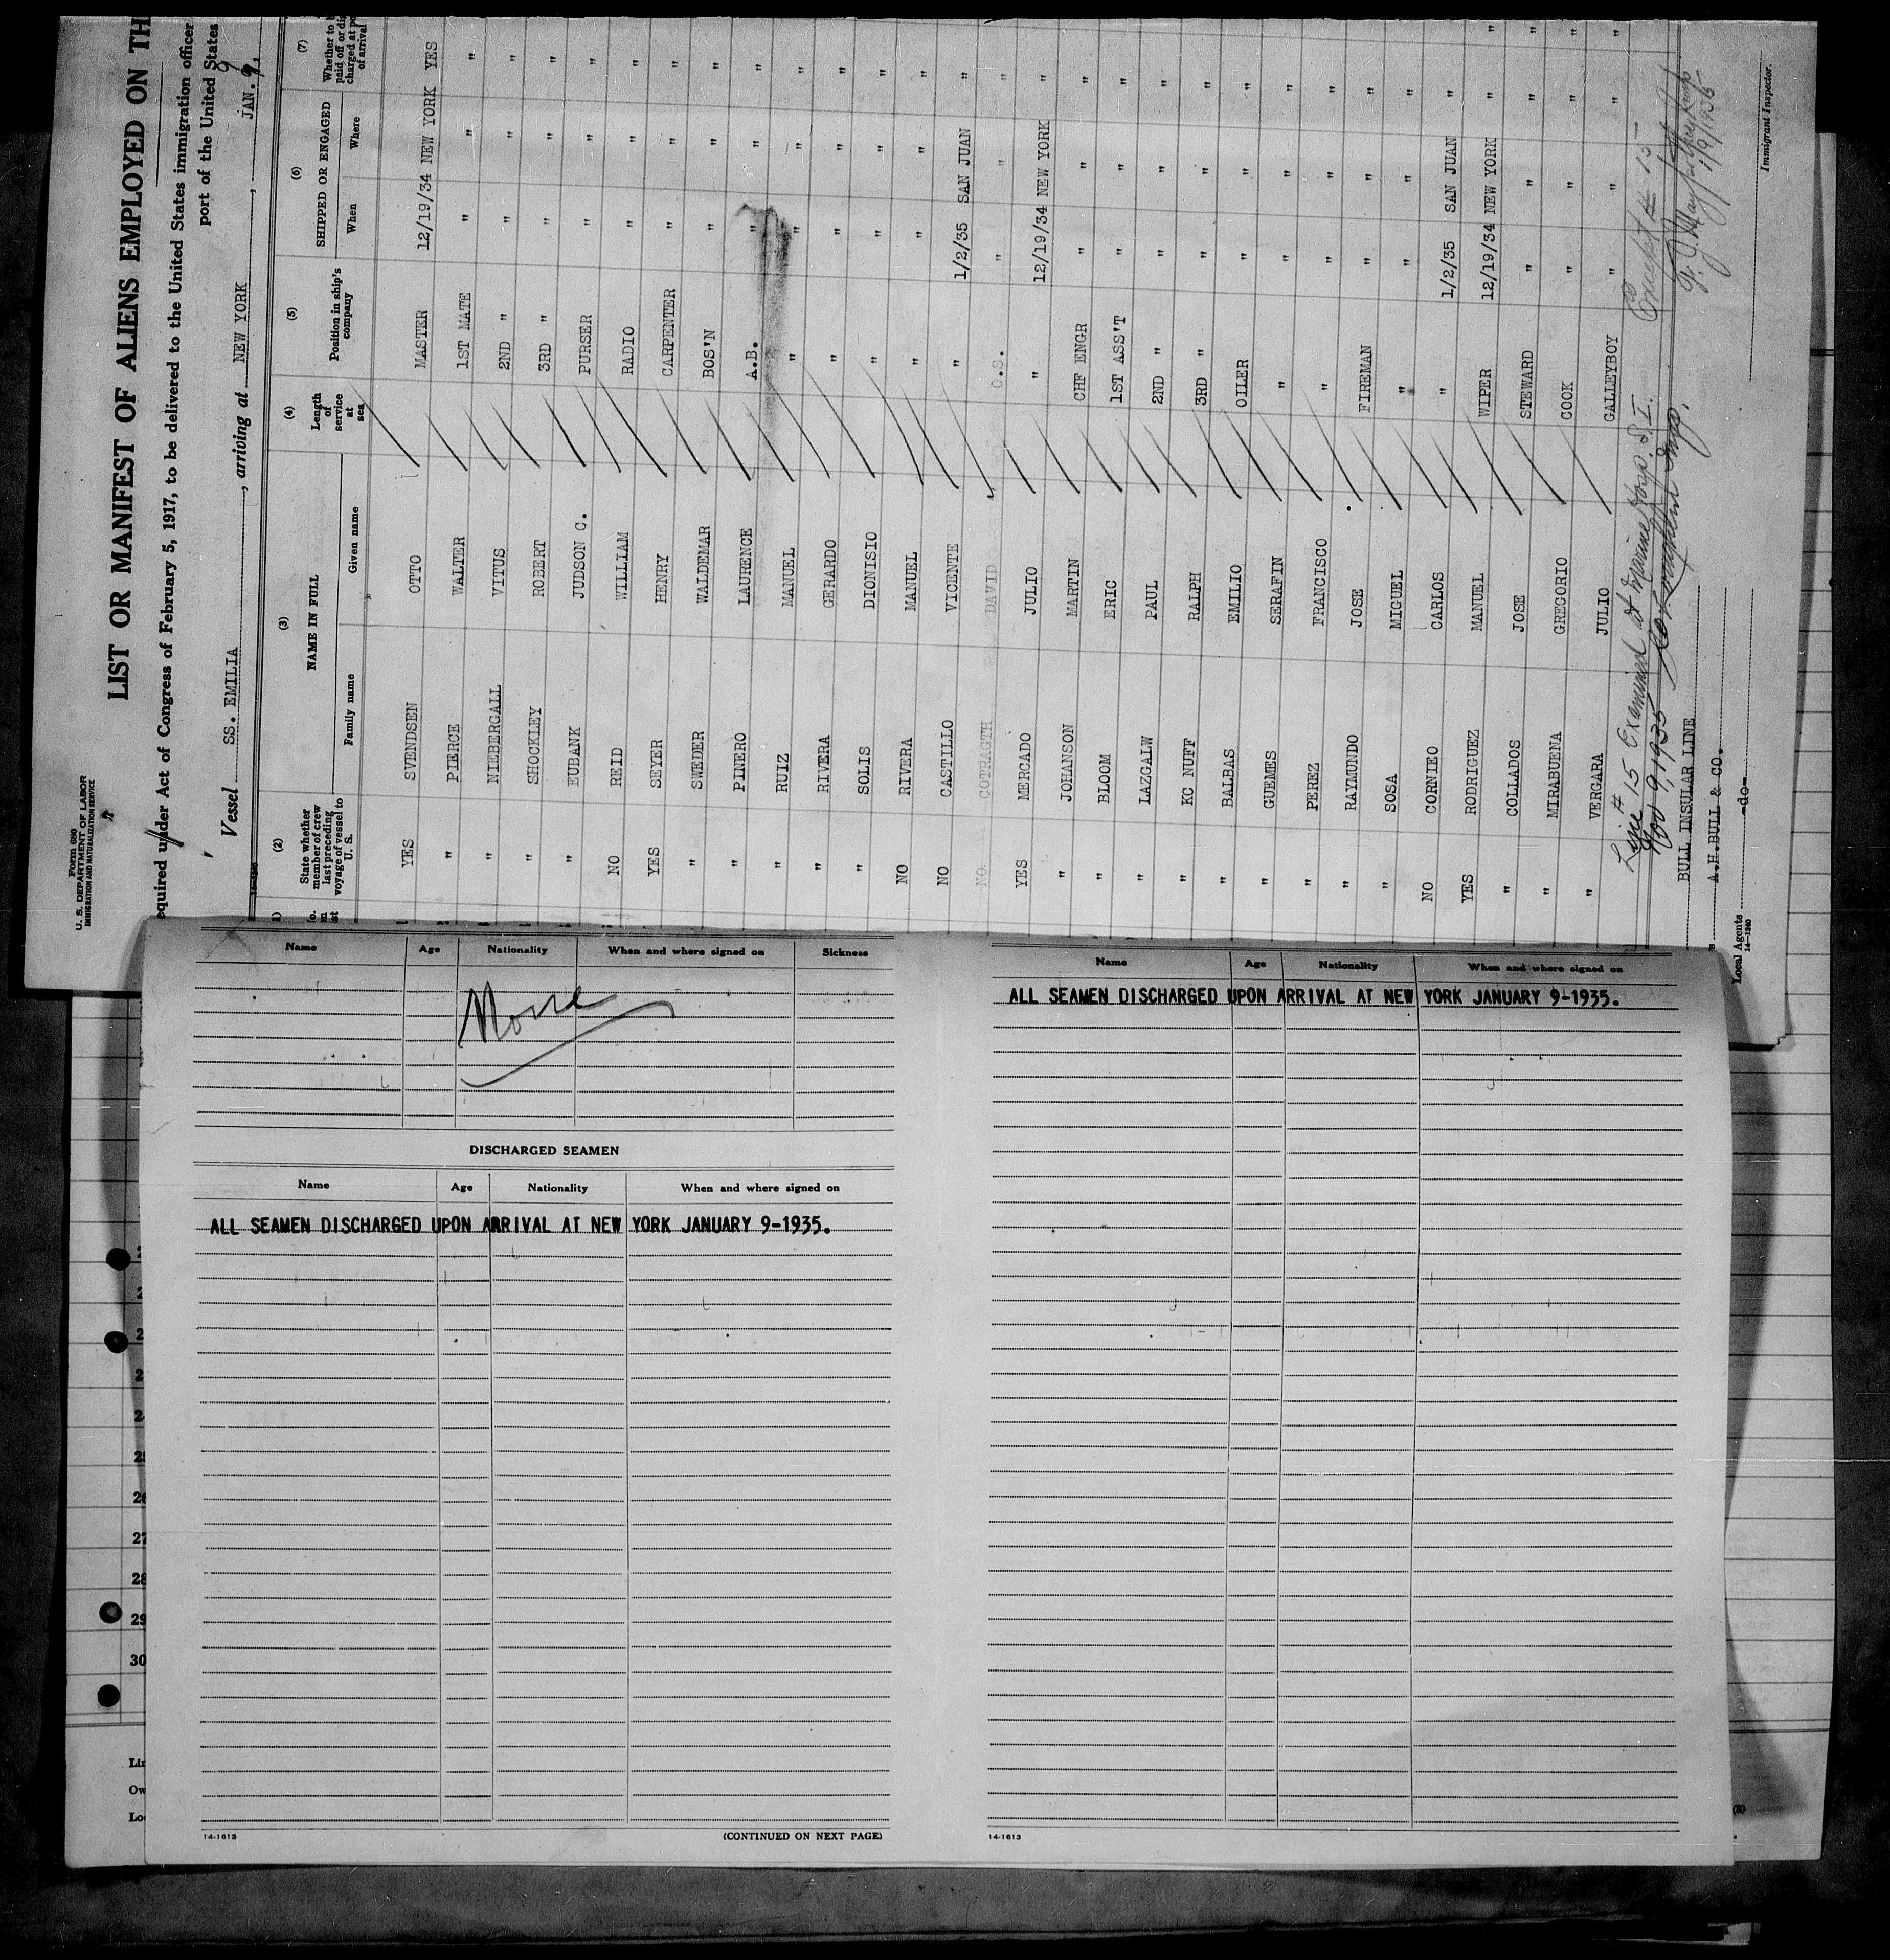 Form 680
U. S. DEPARTMENT OF LABOR
IMMIGRATION AND NATURALIZATION SERVICE
LIST OR MANIFEST OF ALIENS EMPLOYED ON TH
equired under Act of Congress of February 5, 1917, to be delivered to the United States immigration officer
port of the United States
Vessel SS. EMILIA, arriving at NEW YORK, JAN. 9,
(2) (3) (4) (5) (6) (7)
State whether member of crew last preceding voyage of vessel to U. S. NAME IN FULL Family name Given name Length of service at sea Position in ship's company SHIPPED OR ENGAGED When Where Whether to b paid off or di charged at po of arrival
YES SVENDSEN OTTO MASTER 12/19/34 NEW YORK YES
" PIERCE WALTER 1ST MATE " " "
" NIEBERGALL VITUS 2ND " " " "
" SHOCKLEY ROBERT 3RD " " " "
" EUBANK JUDSON C. PURSER " " "
NO REID WILLIAM RADIO " " "
YES SEYER HENRY CARPENTER " " "
" SWEDER WALDEMAR BOS'N " " "
" PINERO LAURENCE A.B. " " "
" RUIZ MANUEL " " " "
" RIVERA GERARDO " " " "
" SOLIS DIONISIO " " " "
NO RIVERA MANUEL " " " "
NO CASTILLO VICENTE " 1/2/35 SAN JUAN "
NO DAVID O.S. " " "
YES MERCADO JULIO " 12/19/34 NEW YORK "
" JOHANSON MARTIN CHF ENGR " " "
" BLOOM ERIC 1ST ASS'T " " "
" LAZGALW PAUL 2ND " " " "
" KC NUFF RALPH 3RD " " " "
" BALBAS EMILIO OILER " " "
" GUEMES SERAFIN " " " "
" PEREZ FRANCISCO " " " "
" RAYMUNDO JOSE FIREMAN " " "
" SOSA MIGUEL " " " "
NO CORNIEO CARLOS " 1/2/35 SAN JUAN "
YES RODRIGUEZ MANUEL WIPER 12/19/34 NEW YORK "
" COLLADOS JOSE STEWARD " " "
" MIRABUENA GREGORIO COOK " " "
" VERGARA JULIO GALLEYBOY " " "
Line # 15 Examined at Marine Hosp. S. I.
Except # 15
1/9/1935
BULL INSULAR LINE
A.H.BULL & CO.
Local Agents -do-
14-1240
Immigrant Inspector.
Name Age Nationality When and where signed on Sickness
None
DISCHARGED SEAMEN
Name Age Nationality When and where signed on
ALL SEAMEN DISCHARGED UPON ARRIVAL AT NEW YORK JANUARY 9-1935.
14-1613
(CONTINUED ON NEXT PAGE)
Name Age Nationality When and where signed on
ALL SEAMEN DISCHARGED UPON ARRIVAL AT NEW YORK JANUARY 9-1935.
14-1613
26
27
28
29
30